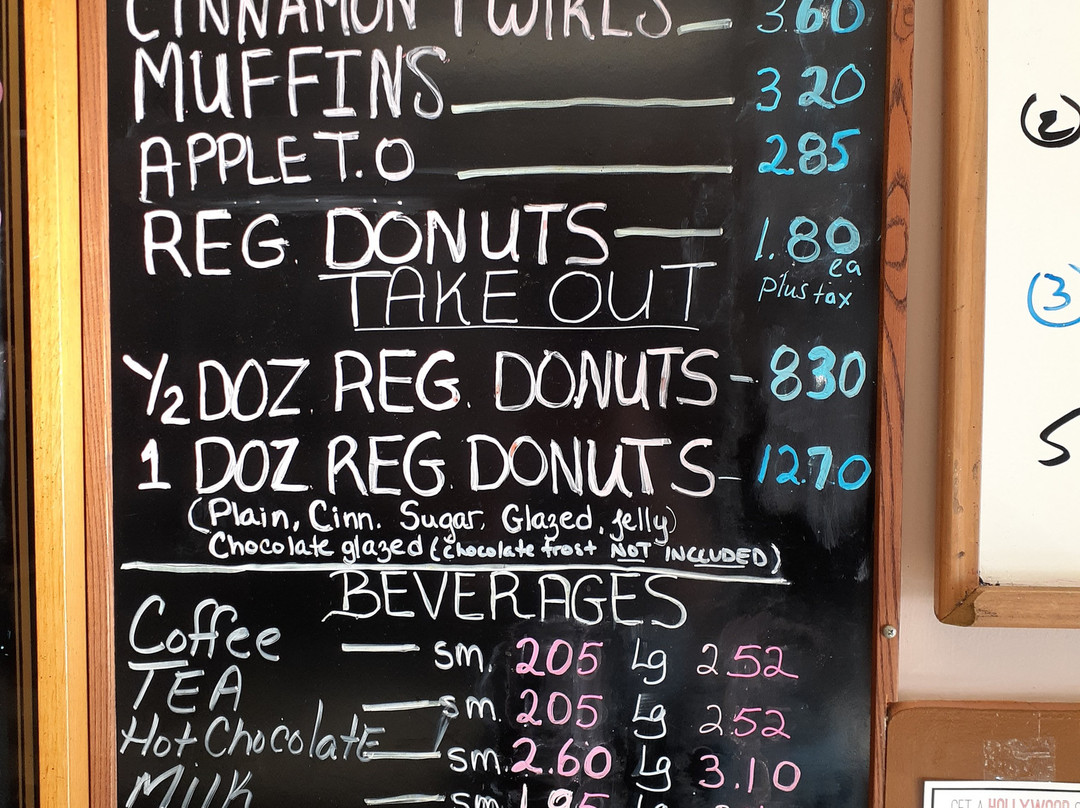 CINNAMON TWIRLS 3.60
MUFFINS 3 20
APPLE T.O 2.85
REG. DONUTS 1.80
ea
plus tax
TAKE OUT
1/2 DOZ. REG. DONUTS - 830
1 DOZ. REG. DONUTS - 12.70
(Plain, Cinn. Sugar, Glazed, jelly)
Chocolate glazed (chocolate frost NOT INCLUDED)
BEVERAGES
Coffee sm. 205 Lg 2 52
TEA sm. 205 Lg 2.52
Hot Chocolate sm. 2.60 Lg 3.10
Milk sm 1.95
(2)
(3)
S
GET A HOLLYWOOD